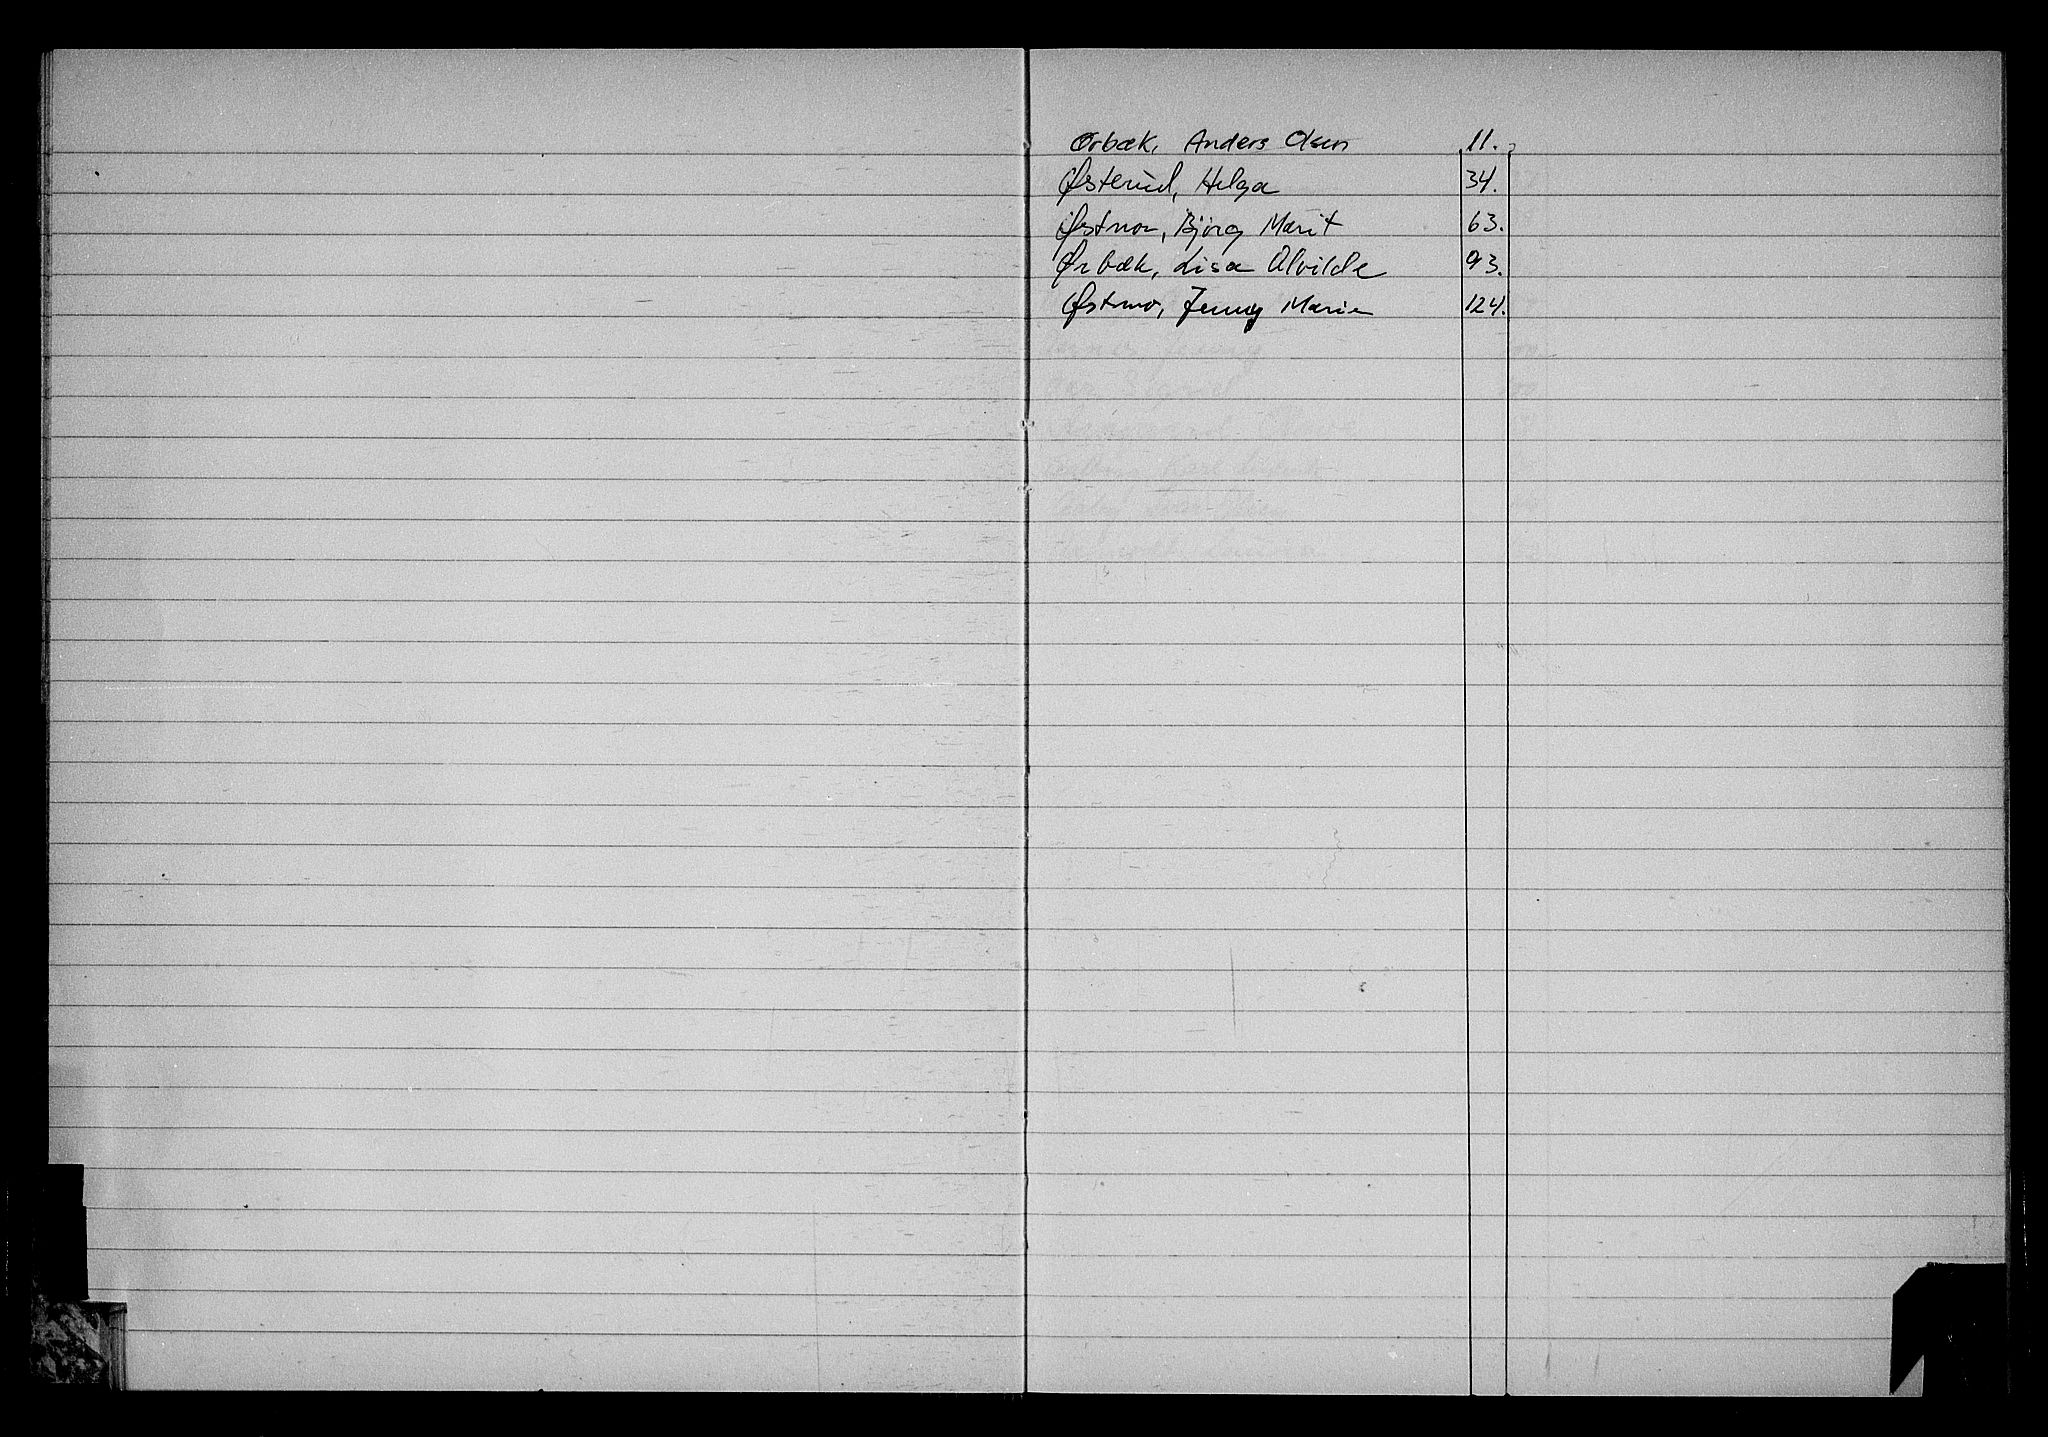 Ørbæk, Anders Olsen 11.
Østerud, Helga 34.
Østmo, Bjørg Marit 63.
Ørbæk, Lisa Alvilde 93.
Østmo, Jenny Marie 124.